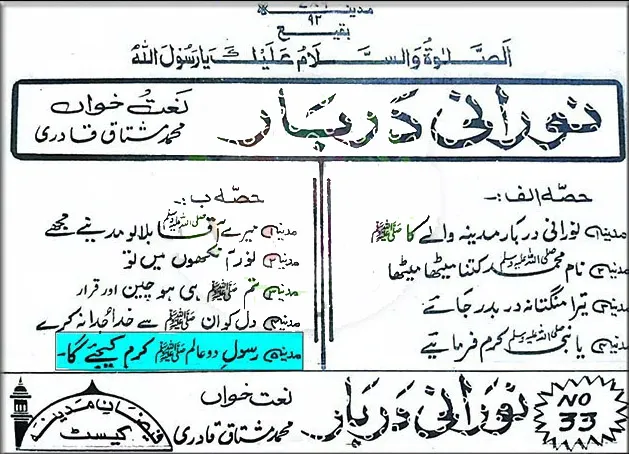 مدینہ
۹۲
بقیع
اَلصَّلوٰۃُ وَالسَّلَامُ عَلَیْكَ یَارَسُوْلَ اللہ
نورانی دربار
نعت خواں
محمد مشتاق قادری
حصہ الف:-
مدینہ۱ نورانی دربار مدینہ والے کا ﷺ
مدینہ۲ نام محمد ﷺ کتنا میٹھا میٹھا
مدینہ۳ تیرا منگتا نہ دربدر جائے
مدینہ۴ یا نبی ﷺ کرم فرمائیے
حصہ ب:-
مدینہ۱ میرے آقا ﷺ بلا لو مدینے مجھے
مدینہ۲ نور آنکھوں میں تو
مدینہ۳ تم ﷺ ہی ہو چین اور قرار
مدینہ۴ دل کو ان ﷺ سے خدا جدا نہ کرے
مدینہ۵ رسولِ دو عالم ﷺ کرم کیجئے گا۔
NO
33
نورانی دربار
نعت خواں
محمد مشتاق قادری
فیضانِ مدینہ
کیسٹ